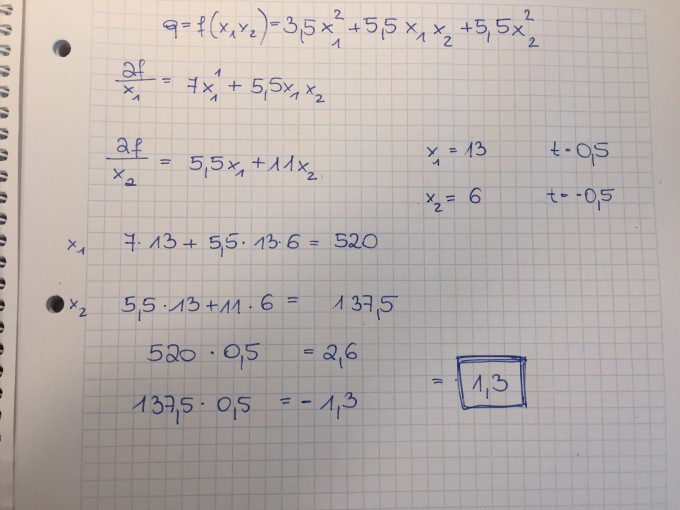 q = f(x₁x₂) = 3,5x₁² + 5,5x₁x₂ + 5,5x₂²
2f/x₁ = 7x₁¹ + 5,5x₁x₂
2f/x₂ = 5,5x₁ + 11x₂
x₁ = 13 t = 0,5
x₂ = 6 t = -0,5
x₁ 7·13 + 5,5·13·6 = 520
x₂ 5,5·13 + 11·6 = 137,5
520 · 0,5 = 2,6
137,5 · 0,5 = -1,3
= 1,3